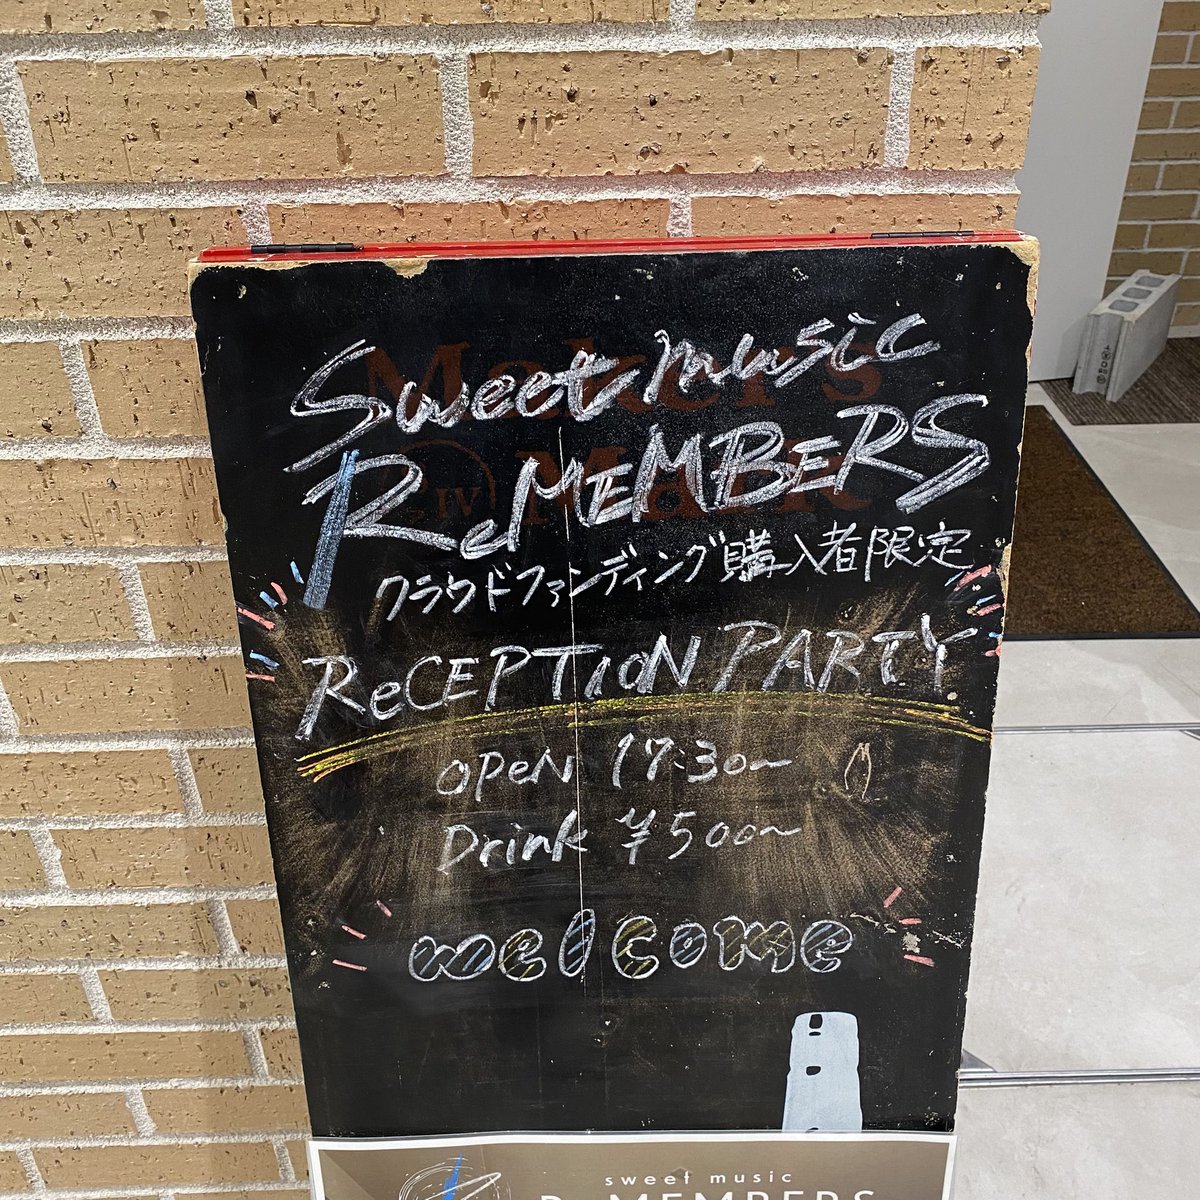 Sweet music
ReMEMBERS
クラウドファンディング購入者限定
ReCEPTION PARTY
OPeN 17:30~
Drink ¥500~
welcome
Maker's
IV Mark
sweet music
Re MEMBERS